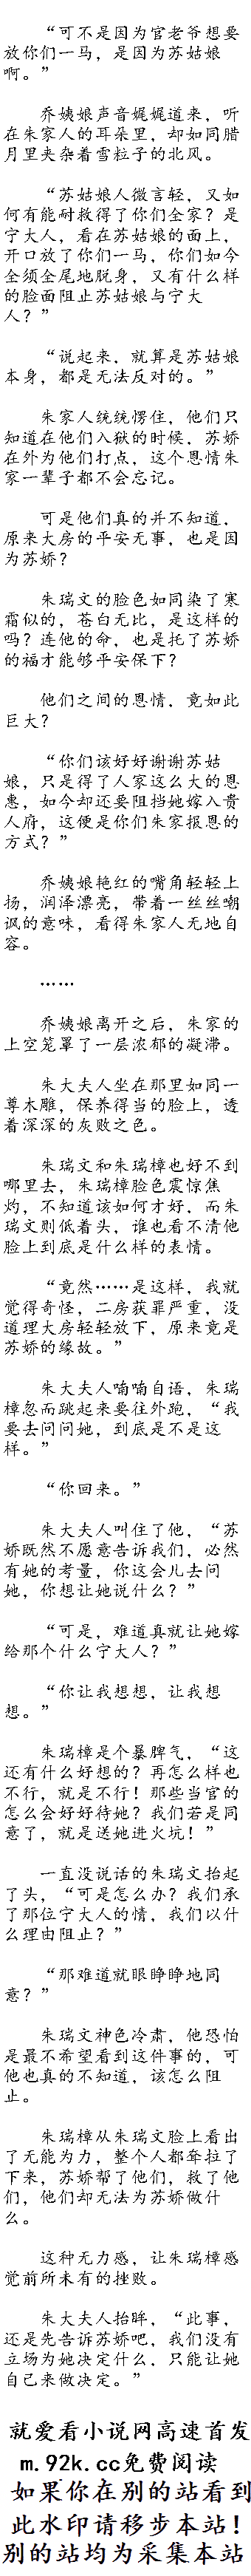 “可不是因为官老爷想要
放你们一马，是因为苏姑娘
啊。”
乔姨娘声音娓娓道来，听
在朱家人的耳朵里，却如同腊
月里夹杂着雪粒子的北风。
“苏姑娘人微言轻，又如
何有能耐救得了你们全家？是
宁大人，看在苏姑娘的面上，
开口放了你们一马，你们如今
全须全尾地脱身，又有什么样
的脸面阻止苏姑娘与宁大
人？”
“说起来，就算是苏姑娘
本身，都是无法反对的。”
朱家人统统愣住，他们只
知道在他们入狱的时候，苏娇
在外为他们打点，这个恩情朱
家一辈子都不会忘记。
可是他们真的并不知道，
原来大房的平安无事，也是因
为苏娇？
朱瑞文的脸色如同染了寒
霜似的，苍白无比，是这样的
吗？连他的命，也是托了苏娇
的福才能够平安保下？
他们之间的恩情，竟如此
巨大？
“你们该好好谢谢苏姑
娘，只是得了人家这么大的恩
惠，如今却还要阻挡她嫁入贵
人府，这便是你们朱家报恩的
方式？”
乔姨娘艳红的嘴角轻轻上
扬，润泽漂亮，带着一丝丝嘲
讽的意味，看得朱家人无地自
容。
……
乔姨娘离开之后，朱家的
上空笼罩了一层浓郁的凝滞。
朱大夫人坐在那里如同一
尊木雕，保养得当的脸上，透
着深深的灰败之色。
朱瑞文和朱瑞樟也好不到
哪里去，朱瑞樟脸色震惊焦
灼，不知道该如何才好，而朱
瑞文则低着头，谁也看不清他
脸上到底是什么样的表情。
“竟然……是这样，我就
觉得奇怪，二房获罪严重，没
道理大房轻轻放下，原来竟是
苏娇的缘故。”
朱大夫人喃喃自语，朱瑞
樟忽而跳起来要往外跑，“我
要去问问她，到底是不是这
样。”
“你回来。”
朱大夫人叫住了他，“苏
娇既然不愿意告诉我们，必然
有她的考量，你这会儿去问
她，你想让她说什么？”
“可是，难道真就让她嫁
给那个什么宁大人？”
“你让我想想，让我想
想。”
朱瑞樟是个暴脾气，“这
还有什么好想的？再怎么样也
不行，就是不行！那些当官的
怎么会好好待她？我们若是同
意了，就是送她进火坑！”
一直没说话的朱瑞文抬起
了头，“可是怎么办？我们承
了那位宁大人的情，我们以什
么理由阻止？”
“那难道就眼睁睁地同
意？”
朱瑞文神色冷肃，他恐怕
是最不希望看到这件事的，可
他也真的不知道，该怎么阻
止。
朱瑞樟从朱瑞文脸上看出
了无能为力，整个人都耷拉了
下来，苏娇帮了他们，救了他
们，他们却无法为苏娇做什
么。
这种无力感，让朱瑞樟感
觉前所未有的挫败。
朱大夫人抬眸，“此事，
还是先告诉苏娇吧，我们没有
立场为她决定什么，只能让她
自己来做决定。”
就爱看小说网高速首发
m.92k.cc免费阅读
如果你在别的站看到
此水印请移步本站！
别的站均为采集本站